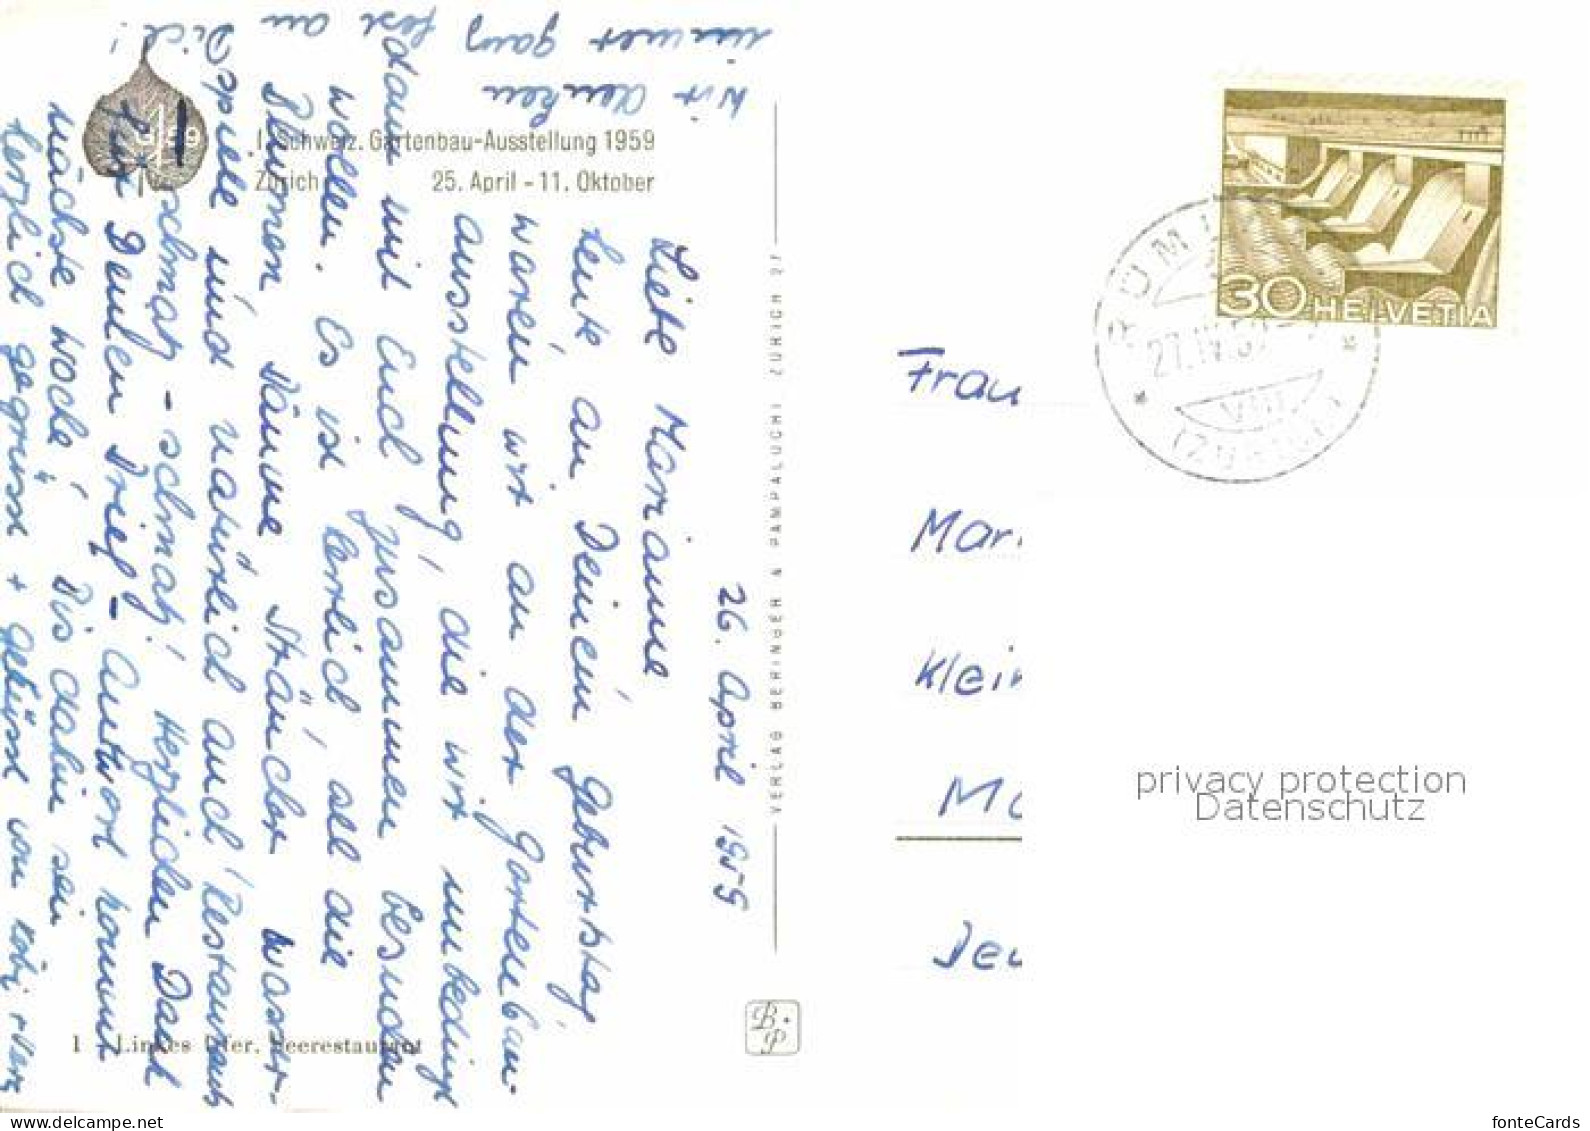 I. Schweiz. Gartenbau-Ausstellung 1959
Zürich 25. April - 11. Oktober
26. April 1959
Liebe Marianne
heute an Deinem Geburtstag
waren wir an der Gartenbau-
ausstellung, die wir unbedingt
dann mit Euch zusammen besuchen
wollen. Es ist herrlich, all die
Blumen, Bäume Sträucher Wasser-
spiele und natürlich auch Restaurants
schmatz - schmatz! Herzlichen Dank
für Deinen Brief - Antwort kommt
nächste Woche! Bis dahin sei
herzlich gegrüsst + geküsst von Köbi +
Wir denken
immer ganz fest an
Dich!
1 - Linkes Ufer, Seerestaurant
VERLAG BERINGER & PAMPALUCHI ZÜRICH 27
B.P
30 HELVETIA
RÜM
27.IV.59
VIII
(ZÜRICH)
Frau
Mar
Klein
privacy protection
Datenschutz
fonteCards